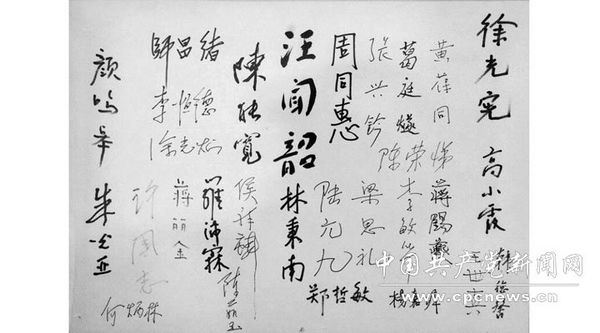 徐光宪
高小霞
黄葆同
蒋锡夔
葛庭燧
陈荣悌
李敏华
杨嘉墀
张兴钤
梁思礼
周同惠
陆元九
郑哲敏
汪闻韶
林秉南
陳能寬
侯祥麟
陈茹玉
師昌緒
李恒德
羅沛霖
蒋丽金
许国志
何炳林
颜鸣皋
朱光亚
中国共产党新闻网
www.cpcnews.cn